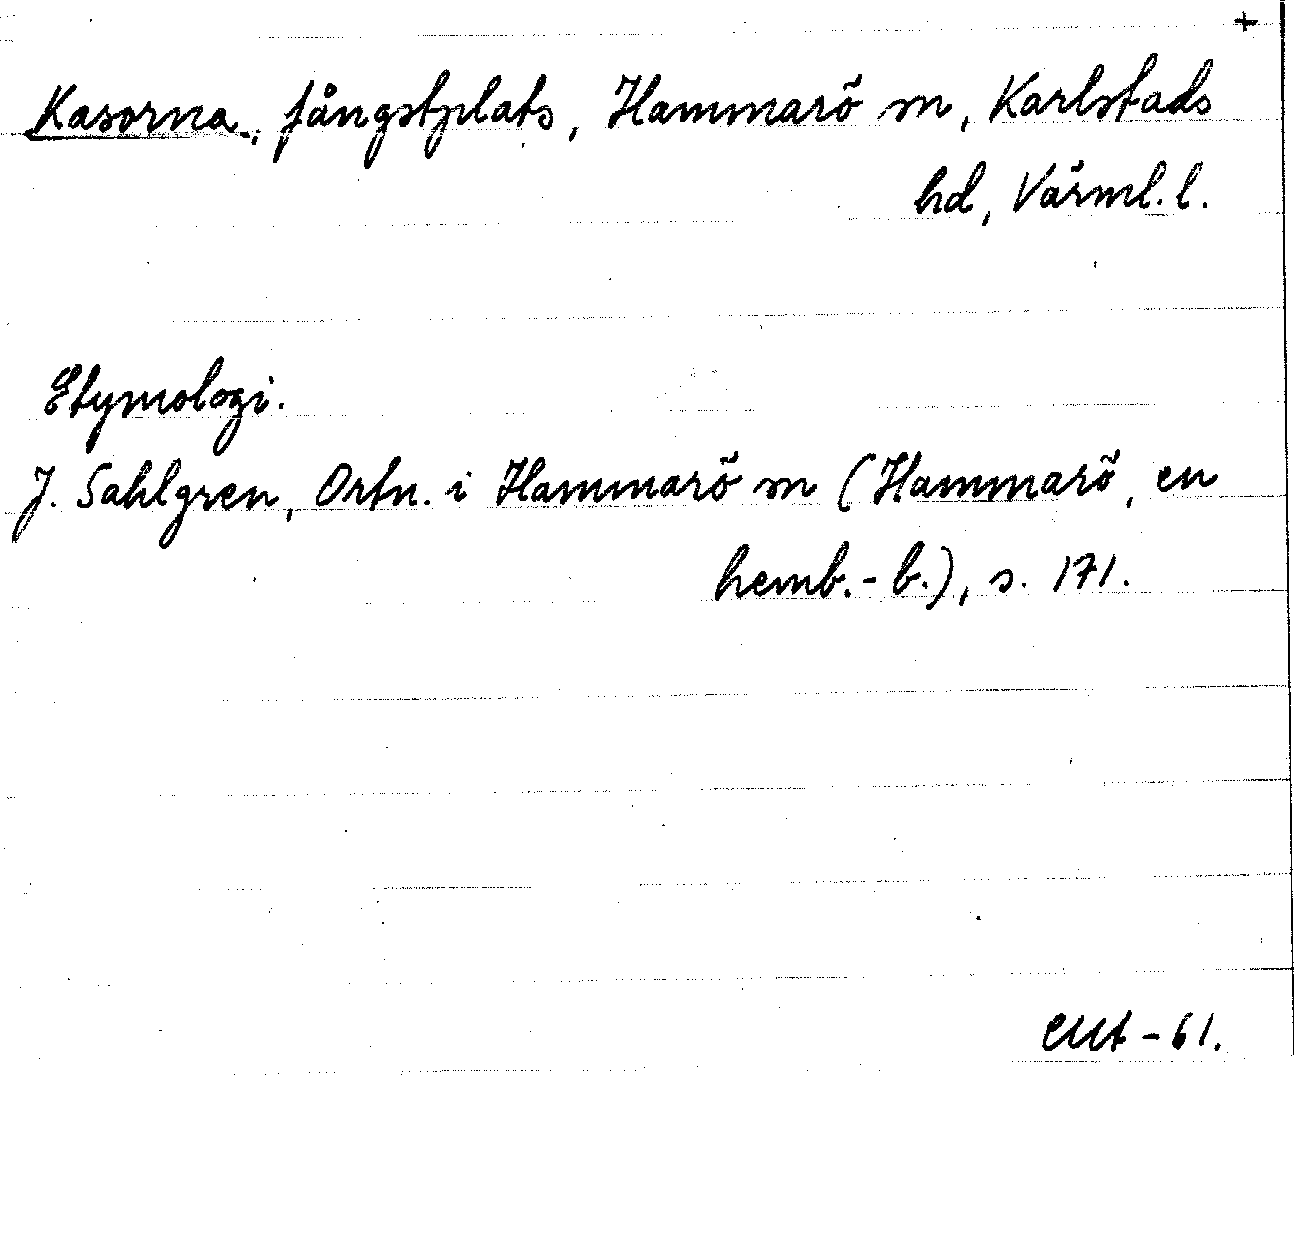 +
Kasorna, fångstplats, Hammarö sn, Karlstads
hd, Värml. l.
Etymologi.
J. Sahlgren, Ortn. i Hammarö sn (Hammarö, en
hemb.-b.), s. 171.
-61.